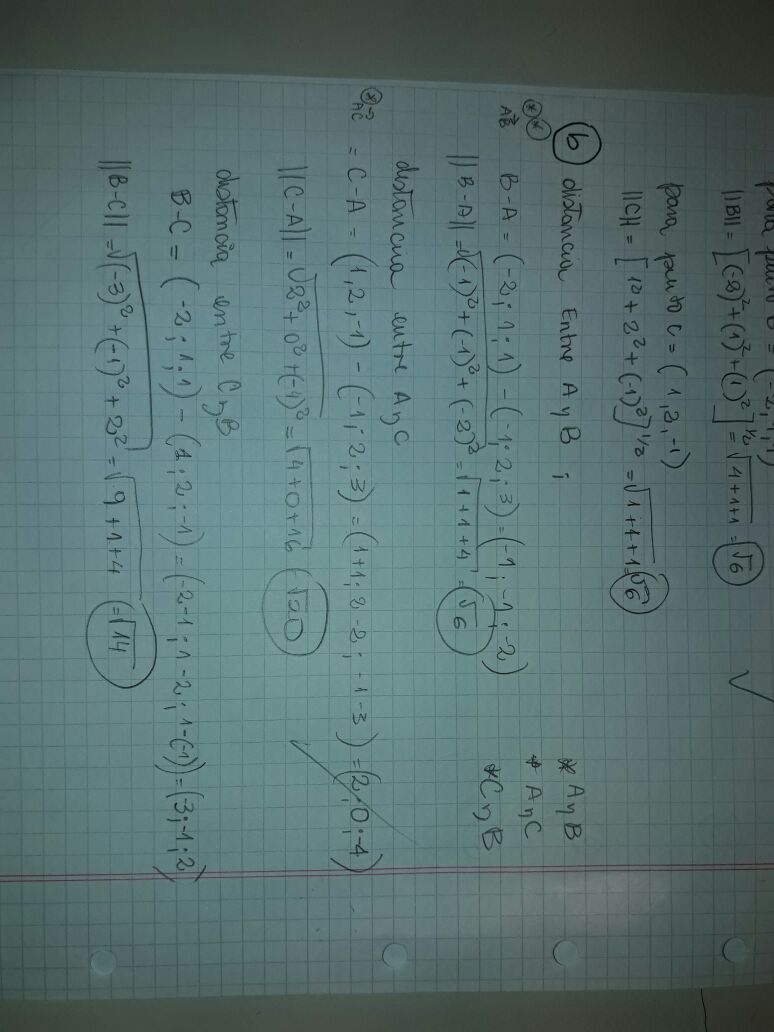 para punto B = (-2,1,1)
||B|| = [(-2)² + (1)² + (1)²]^1/2 = √4+1+1 = √6
para punto C = (1,2,-1)
||C|| = [1² + 2² + (-1)²]^1/2 = √1+4+1 = √6
b) distancia Entre A y B ;
* A y B
* A y C
* C y B
** AB B-A = (-2;1;1) - (-1;2;3) = (-1;-1;-2)
||B-A|| = √(-1)² + (-1)² + (-2)² = √1+1+4 = √6
distancia entre A y C
* AC = C-A = (1,2,-1) - (-1;2;3) = (1+1;2-2;-1-3) = (2;0;-4)
||C-A|| = √2² + 0² + (-4)² = √4+0+16 √20
distancia entre C y B
B-C = (-2;1;1) - (1;2;-1) = (-2-1;1-2;1-(-1)) = (-3;-1;2)
||B-C|| = √(-3)² + (-1)² + 2² = √9+1+4 = √14